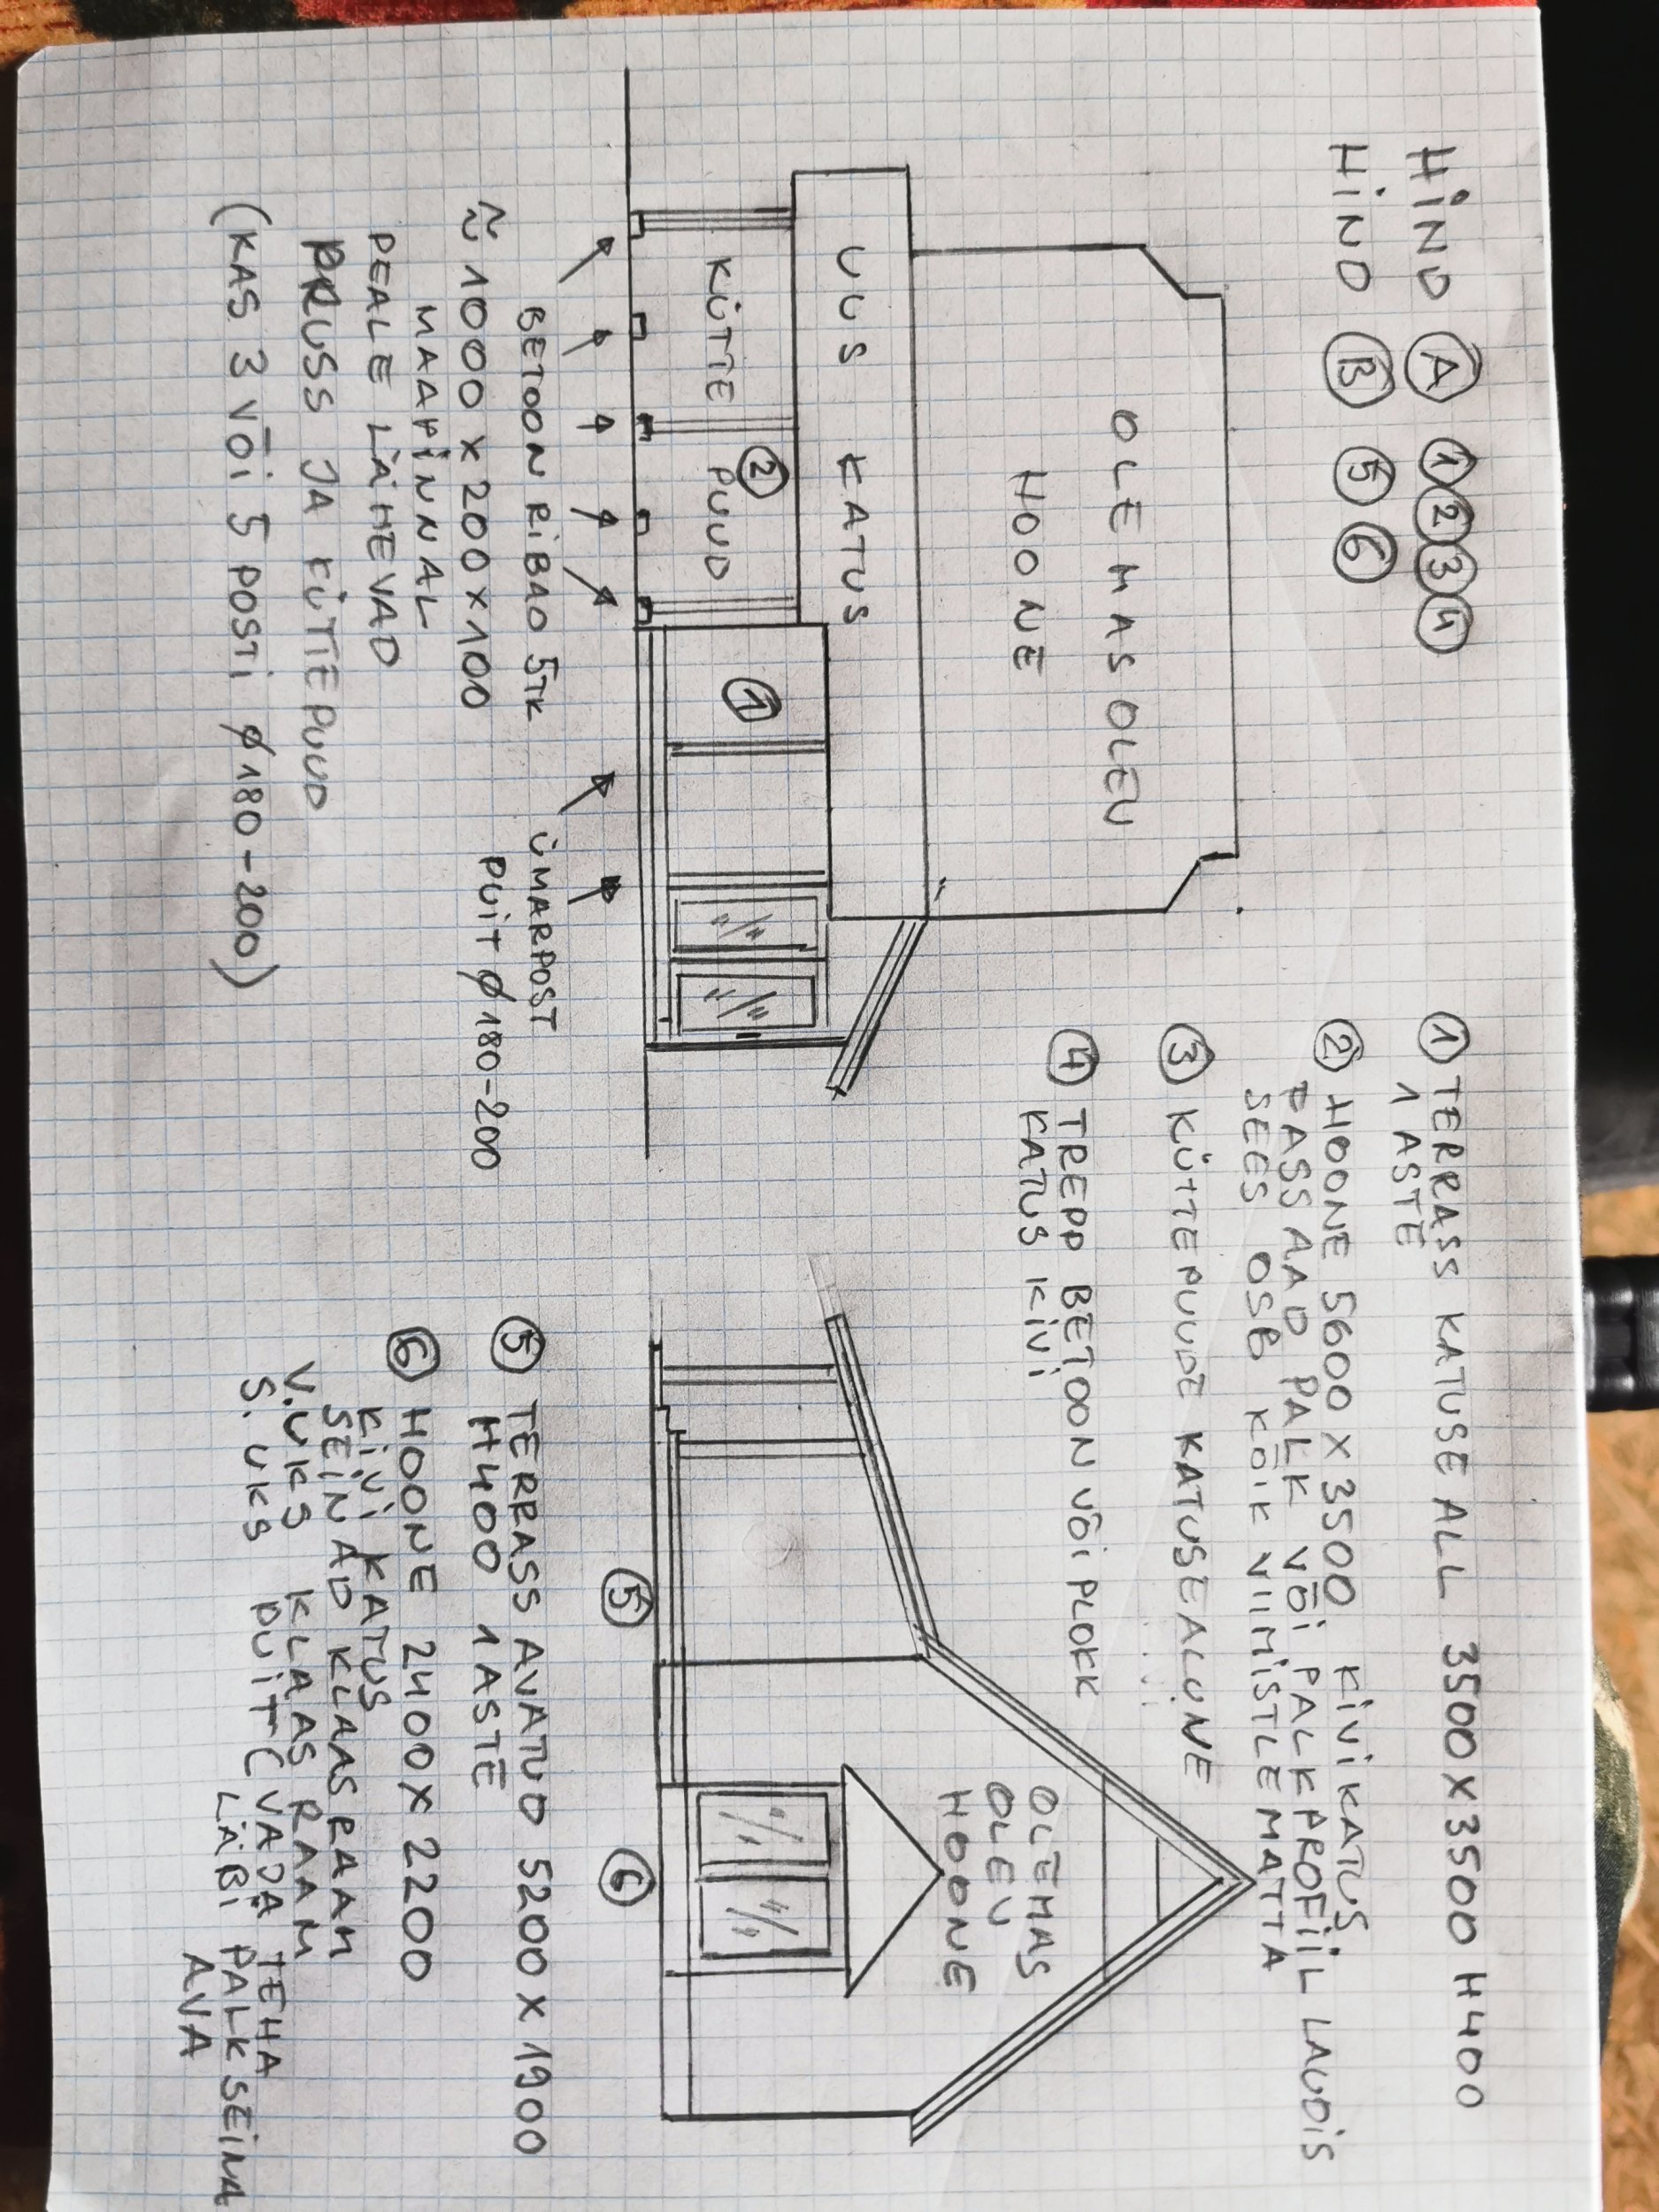 HIND A 1 2 3 4
HIND B 5 6
OLEMASOLEV
HOONE
UUS KATUS
KÜTTE
PUUD
2
1
BETOON RIBAD 5TK
~ 1000 x 200 x 100
MAAPINNAL
PEALE LÄHEVAD
PRUSS JA KÜTTEPUUD
(KAS 3 VÕI 5 POSTI ø 180-200)
ÜMARPOST
PUIT ø 180-200
1 TERRASS KATUSE ALL 3500 X 3500 H400
1 ASTE
2 HOONE 5600 X 3500 KIVIKATUS
FASSAAD PALK VÕI PALKPROFIIL LAUDIS
SEES OSB KÕIK VIIMISTLEMATTA
3 KÜTTEPUUDE KATUSEALUNE
4 TREPP BETOON VÕI PLOKK
KATUS KIVI
OLEMAS
OLEV
HOONE
5
6
5 TERRASS AVATUD 5200 x 1900
H400 1 ASTE
6 HOONE 2400 X 2200
KIVI KATUS
SEINAD KLAASRAAM
V.UKS KLAAS RAAM
S. UKS PUIT (VAJA TEHA
LÄBI PALKSEINA
AVA